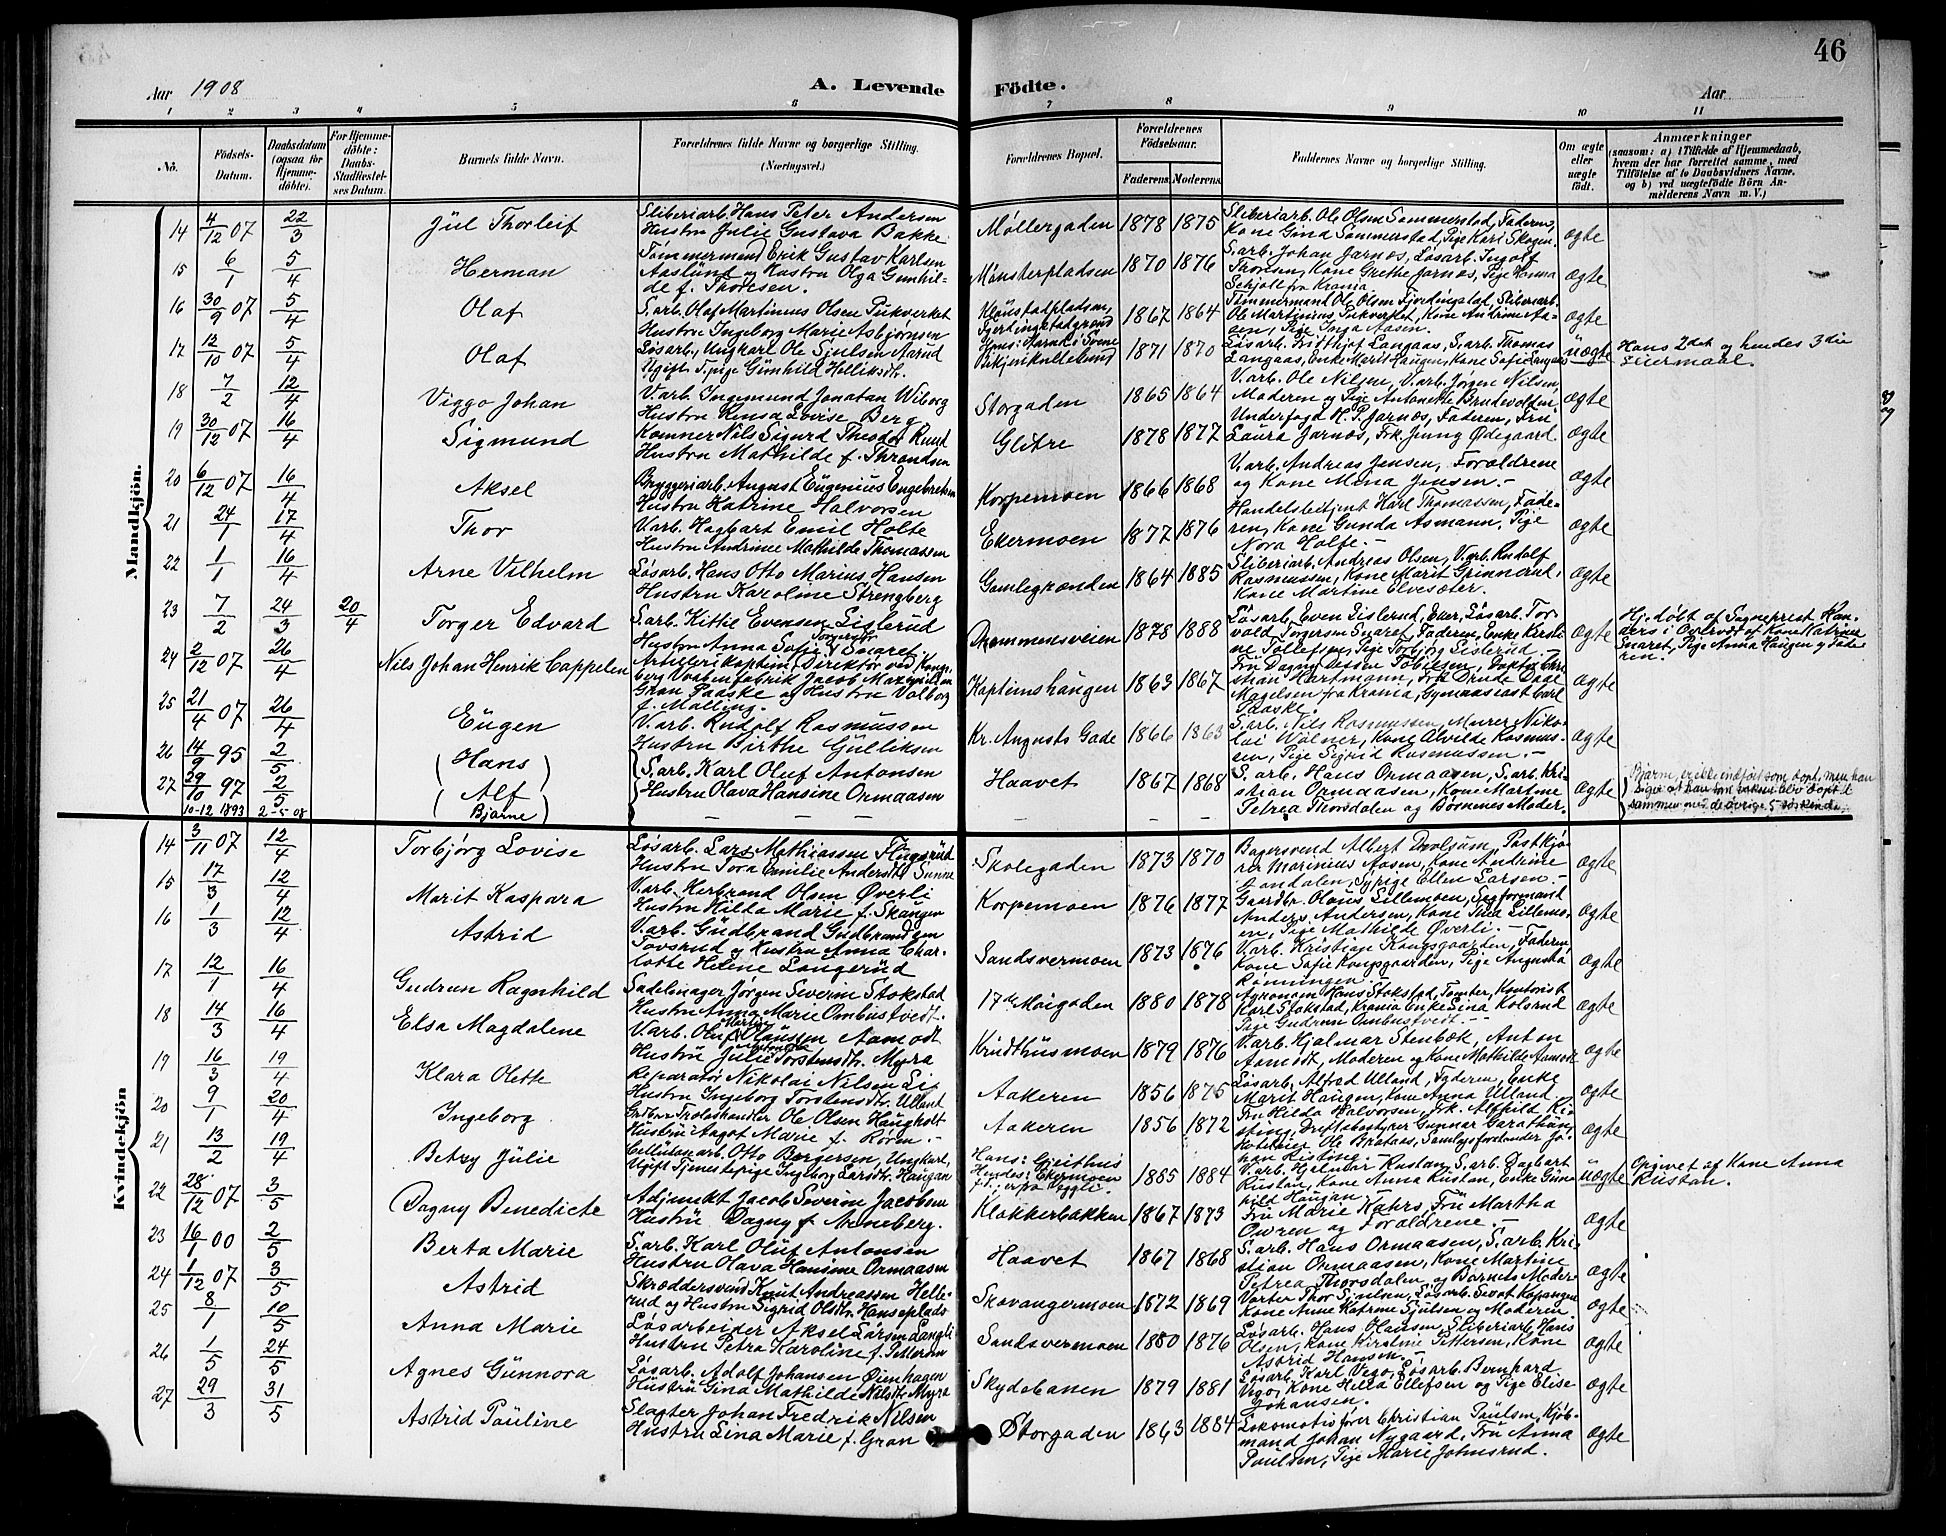 46
Aar 1908
A. Levende Födte.
Aar
1 2 3 4 5 6 7 8 9 10 11
No.
Födsels-Datum.
Daabsdatum (ogsaa for Hjemme-döbte).
For Hjemme-döbte: Daabs-Stadfæstel-ses Datum.
Barnets fulde Navn.
Forældrenes fulde Navne og borgerlige Stilling. (Næringsvei.)
Forældrenes Bopæl.
Forældrenes Födselsaar.
Faderens. Moderens.
Faddernes Navne og borgerlige Stilling.
Om ægte eller uægte födt.
Anmærkninger
(saasom: a) i Tilfælde af Hjemmedaab, hvem der har forrettet samme, med Tilföielse af to Daabsvidners Navne, og b) ved uægtefödte Börn An-melderens Navn m. V.)
Mandkjön.
14 4/12 07 22/3 Jül Thorleif
Sliberiarb. Hans Peter Andersen
Hustru Julie Gustava Bakke
Møllergaden 1878 1875
Sliberiarb. Ole Olsen Sommerstad, Faderen,
Kone Gina Sommerstad, Pige Kari Skogen.
ægte
15 6/1 5/4 Herman
Tømmermand Erik Gustav Karlsen
Aaslund og Hustru Olga Gunhil-
de f. Thoresen.
Mønsterpladsen 1870 1876
S.arb. Johan Jarnæs, Løsarb. Ingolf
Thoresen, Kone Grethe Jarnæs, Pige Hanna
Schjøll fra Krania
ægte
16 30/9 07 5/4 Olaf
S.arb. Olaf Martinius Olsen Pukverket
Hustru Ingeborg Marie Asbjørnsen
1867 1864
Tømmermand Ole Olsen Fjerdingstad, Sliberiarb.
Ole Martinius Pukverket, Kone Andrine Aa-
sen, Pige Inga Aasen.
ægte
17 12/10 07 5/4 Olaf
Løsarb., Ungkarl Ole Sjulsen Aarud
Ugift S.pige Gunhild Helliksdt.
Hans: Aarud i Svene
1871 1870
Løsarb. Fritthjof Langaas, S.arb. Thomas
Langaas, Enke Marit Haugen, Kone Sofie Langaas
üægte
Hans 2det og hendes 3die
Leiermaal.
18 7/2 12/4 Viggo Johan
V.arb. Ingemund Jonatan Wiborg
Hustru Rinsa Lovise Berg
Storgaden 1865 1864
V.arb. Ole Nilsen, V.arb. Jørgen Nilsen,
Moderen og Pige Antonette Brudevolden
ægte
19 30/12 07 16/4 Sigmund
Kemner Nils Sigurd Theodor Ruud
Hustru Mathilde f. Throndsen
Glitre 1878 1877
Underfogd K. P. Jarnæs, Faderen, Fru
Laura Jarnæs, Frk. Jenny Ødegaard.
ægte
20 6/12 07 16/4 Aksel
Bryggeriarb. August Eugenius Engebretsen
Hustru Katrine Halvorsen
Korpemoen 1866 1868
V.arb. Andreas Jensen, Forældrene
og Kone Mina Jensen.–
ægte
21 24/1 17/4 Thor
V.arb. Hagbart Emil Holte
Hustru Andrine Mathilde Thomassen
Ekermoen 1877 1876
Handelsbetjent Karl Thomassen, Fade-
ren, Kone Gunda Asmann, Pige
Nora Holte.–
ægte
22 1/1 16/4 Arne Vilhelm
Løsarb. Hans Otto Marius Hansen
Hustru Karoline Strengberg
Gamlegrænden 1864 1885
Sliberiarb. Andreas Olsen, V.arb. Rudolf
Rasmussen, Kone Marit Grinnerud,
Kone Martine Elvesæter.
ægte
23 7/2 24/3 20/4 Torger Edvard
S.arb. Kittil Evensen Lislerud
Hustru Anna Sofie Torgersdt. Snaret
Drammensveien 1878 1888
Løsarb. Even Lislerud, Eker, Løsarb. Tor-
vald Torgersen Snaret, Faderen, Enke Kirsti-
ne Tollefsen, Pige Torbjør Lislerud.–
ægte
Hj. døbt af Sogneprest Kon-
Snaret, Pige Anna Haugen og Fade
ren.
24 2/12 07 26/4 Nils Johan Henrik Cappelen
Artillerikaptein, Direktør ved Kongs-
berg Vaabenfabrik Jacob Maximilian
Gran Paaske og Hustru Valborg
f. Malling.
Kapteinshaugen 1863 1867
Fru Dagny Dessen Tobiesen, Doktor Chri-
stian Hartmann, Frk. Drude Daae
Magelsen fra Krania, Gymnasiast Carl
Paaske.
ægte
25 21/4 07 26/4 Eugen
V.arb. Rudolf Rasmussen
Hustru Birthe Gulliksen
Kr. Augusts Gade 1866 1863
S.arb. Nils Rasmussen, Murer Niko-
lai Wølner, Kone Alvilde Rasmus-
sen, Pige Sigrid Rasmussen.–
ægte
26 14/9 95 2/5 Hans
27 29/10 97 2/5 Alf
10-12 1893 2-5-08 Bjarne
S.arb. Karl Oluf Antonsen
Hustru Olava Hansine Ormaasen
Haavet 1867 1868
S.arb. Hans Ormaasen, S.arb. Kri-
stian Ormaasen, Kone Martine
Petrea Thorsdalen og Børnenes Moder.
ægte
Bjarne, er ikke indført som døpt, men han
siger at han som voksen blev døpt
sammen med de øvrige 5 søskende.
Kvindekjön
14 3/11 07 12/4 Torbjørg Lovise
Løsarb. Lars Mathiassen Flugsrud
Hustru Tora Emilie Andersdt. Sunne
Skolegaden 1873 1870
Bagersvend Albert Dvolsum, Postkjø-
rer Marinius Aasen, Kone Andrine
Jondalen, Sypige Ellen Larsen.–
ægte
15 17/3 12/4 Marit Kaspara
V.arb. Herbrand Olsen Øverli
Hustru Hilda Marie f. Skaugen
Korpemoen 1876 1877
Gaardbr. Olaus Lillemoen, Sagformand
Anders Andersen, Kone Tina Lillemo-
en, Pige Mathilde Øverli.–
ægte
16 1/3 12/4 Astrid
V.arb. Gudbrand Gudbrandsen
Tovsrud og Hustru Anna Char-
lotte Heline Langerud
Sandsvermoen 1873 1876
V.arb. Kristian Kongsgaarden, Faderen,
Kone Sofie Kongsgaarden, Pige Augusta
Rønningen.–
ægte
17 12/1 16/4 Gudrun Ragnhild
Sadelmager Jørgen Severin Stokstad
Hustru Anna Marie Ombustvedt.
17de Maigaden 1880 1878
Agronom Hans Stokstad, Tomter, Kontorist
Karl Stokstad, Krania, Enke Sina Kolsrud
Pige Gudrun Ombustvedt.–
ægte
18 14/3 16/4 Elsa Magdalene
V.arb. Oluf Martin Hanssen Aamodt
Hustru Julie Antonette Torstensdtr. Myra
Kridthüsmoen 1879 1876
V.arb. Hjalmar Stenbæk, Anton
Aamodt, Moderen og Kone Mathilde Aamodt
ægte
19 16/3 19/4 Klara Olette
Reparatør Nikolai Nilsen Lie
Hustru Ingeborg Torstensdtr. Ulland
Aakeren 1856 1875
Løsarb. Alfred Ulland, Faderen, Enke
Marit Haugen, Kone Anna Ulland
ægte
20 9/1 20/4 Ingeborg
Trælasthandler Ole Olsen Haugholt
Hustru Aagot Marie f. Rören.–
Aakeren 1856 1872
Fru Hilda Halvorsen, Frk. Alfhild Ki-
sting, Driftsbestyrer Gunnar Gerathsen,
Hotelleier Ole Braataas, Samlagsforstander Jo-
han Kisting.–
ægte
21 13/2 19/4 Betzy Julie
Cellulosearb. Otto Børgersen, Ungkarl,
Ugift Tjenestepige Ingeborg Larsdtr. Haugan
Hans: Gjeithus
Hendes: Ekermoen
1885 1884
V.arb. Hjalmar Rustan, S.arb. Dagbart
Rustan, Kone Anna Rustan, Enke Gun-
hild Haugan.–
uægte
Opgivet af Kone Anna
Rustan.
22 28/12 07 3/5 Dagny Benedicte
Adjunkt Jacob Severin Jacobsen
Hustru Dagny f. Arneberg.
Klokkerbakken 1867 1873
Fru Marie Kahrs, Fru Martha
Owren og Forældrene.–
ægte
23 16/1 00 2/5 Berta Marie
S.arb. Karl Oluf Antonsen
Hustru Olava Hansine Ormaasen
Haavet 1867 1868
S.arb. Hans Ormaasen, S.arb. Kri-
stian Ormaasen, Kone Martine
Petrea Thorsdalen og Barnets Moder
ægte
24 1/12 07 3/5 Astrid
Skræddersvend Knut Andreassen Helle-
rud og Hustru Sigrid Olsdtr. Hanseplads
Skavangermoen 1872 1869
Vegter Thor Sjulsen, Løsarb. Sivat Kopangen
Kone Anne Katrine Sjulsen og Moderen
ægte
25 8/1 10/5 Anna Marie
Løsarbeider Aksel Larsen Langli
Hustru Petra Karoline f. Pettersen
Sandsvermoen 1880 1876
Løsarb. Hans Hansen, Sliberiarb. Hans
Olsen, Kone Kirstine Pettersen, Kone
Astrid Hansen.–
ægte
26 1/5 24/5 Agnes Gunnora
Løsarb. Adolf Johansen Øienhagen
Hustru Gina Mathilde Nilsdtr. Myra
Skydebanen 1879 1881
Løsarb. Karl Vego, Løsarb. Bernhard
Vego, Kone Hella Ellefsen og Pige Elise
Johansen.
ægte
27 29/3 31/5 Astrid Pauline
Slagter Johan Fredrik Nilsen
Hustru Lina Marie f. Gran
Storgaden 1863 1884
Lokomotivfører Christian Paulsen, Kjøb-
mand Johan Nygaard, Fru Anna
Paulsen, Pige Marie Johnsrud.
ægte